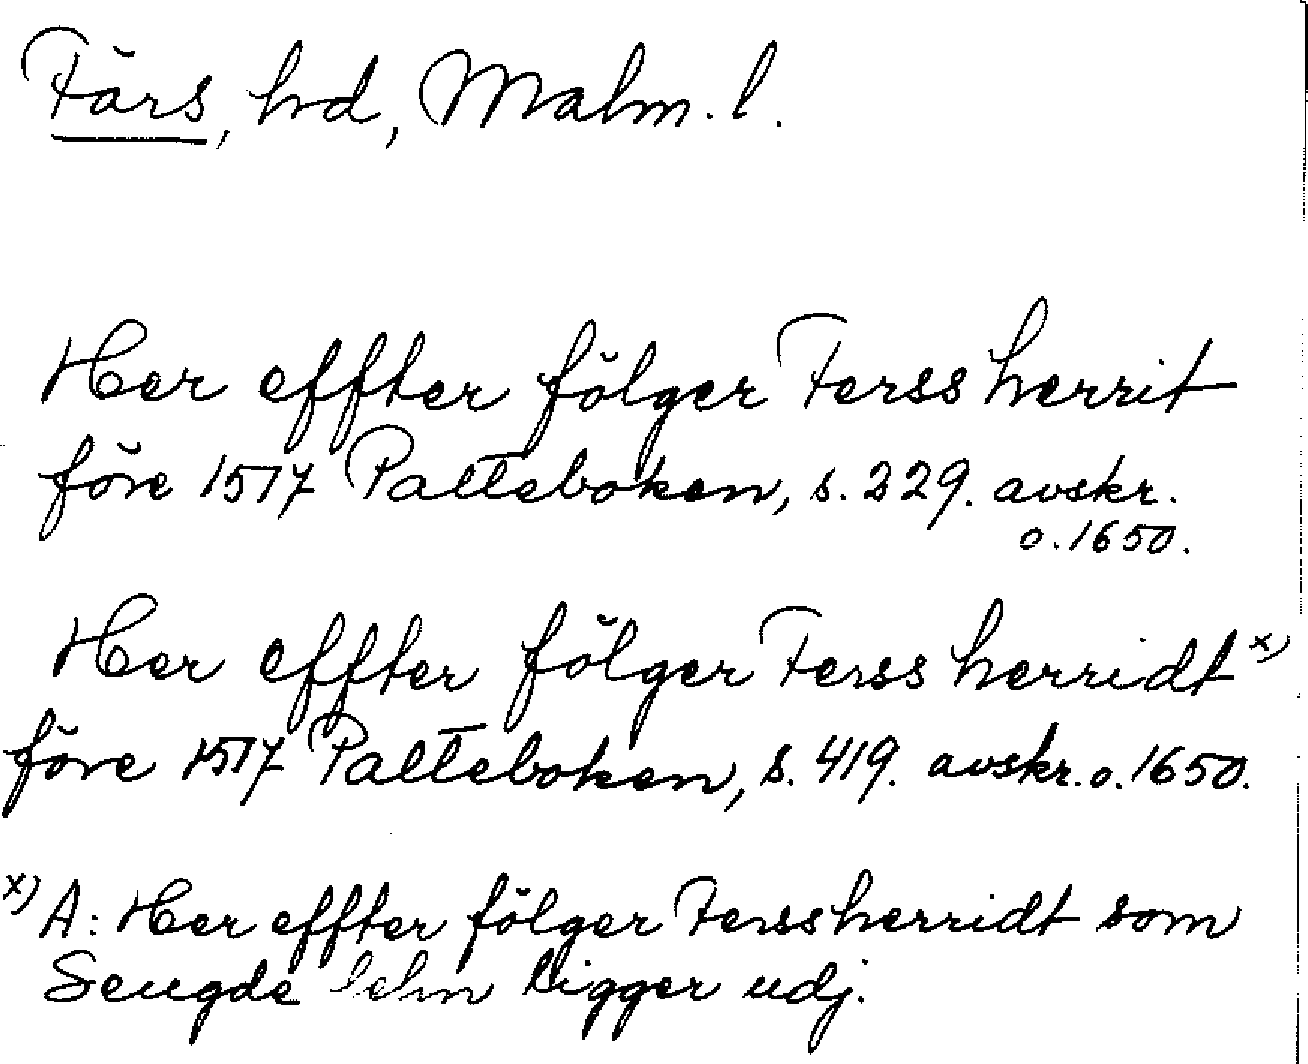 Färs, hd, Malm. l.
Her effter fölger Ferss herrit
före 1517 Palteboken, s. 229. avskr.
o. 1650.
Her effter fölger Ferss herridt x)
före 1517 Palteboken, s. 419. avskr. o. 1650.
x) A: Her effter fölger Ferssherridt som
Seugde lehn ligger udj.